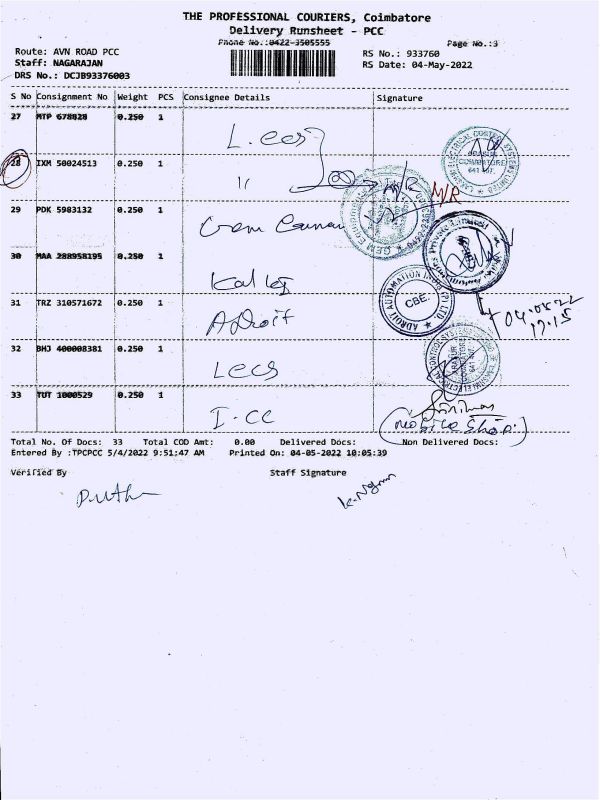 THE PROFESSIONAL COURIERS, Coimbatore
Delivery Runsheet - PCC
Phone No.:0422-3505555
Page No.:3
Route: AVN ROAD PCC
RS No.: 933760
Staff: NAGARAJAN
RS Date: 04-May-2022
DRS No.: DCJB93376003
S No Consignment No Weight PCS Consignee Details Signature
27 MTP 678828 0.250 1
L.ecs
28 IXM 50024513 0.250 1
11
M/R M/R
29 PDK 5983132 0.250 1
Gem
30 MAA 288958195 0.250 1
31 TRZ 310571672 0.250 1
Adroit
ADROIT AUTOMATION INDIA (P) LTD.
CBE.
04.05.22
17.15
32 BHJ 400008381 0.250 1
Lecs
33 TUT 1000529 0.250 1
I.CC
(Mobile Shop.)
Total No. Of Docs: 33 Total COD Amt: 0.00 Delivered Docs: Non Delivered Docs:
Entered By :TPCPCC 5/4/2022 9:51:47 AM Printed On: 04-05-2022 10:05:39
Verified By Staff Signature